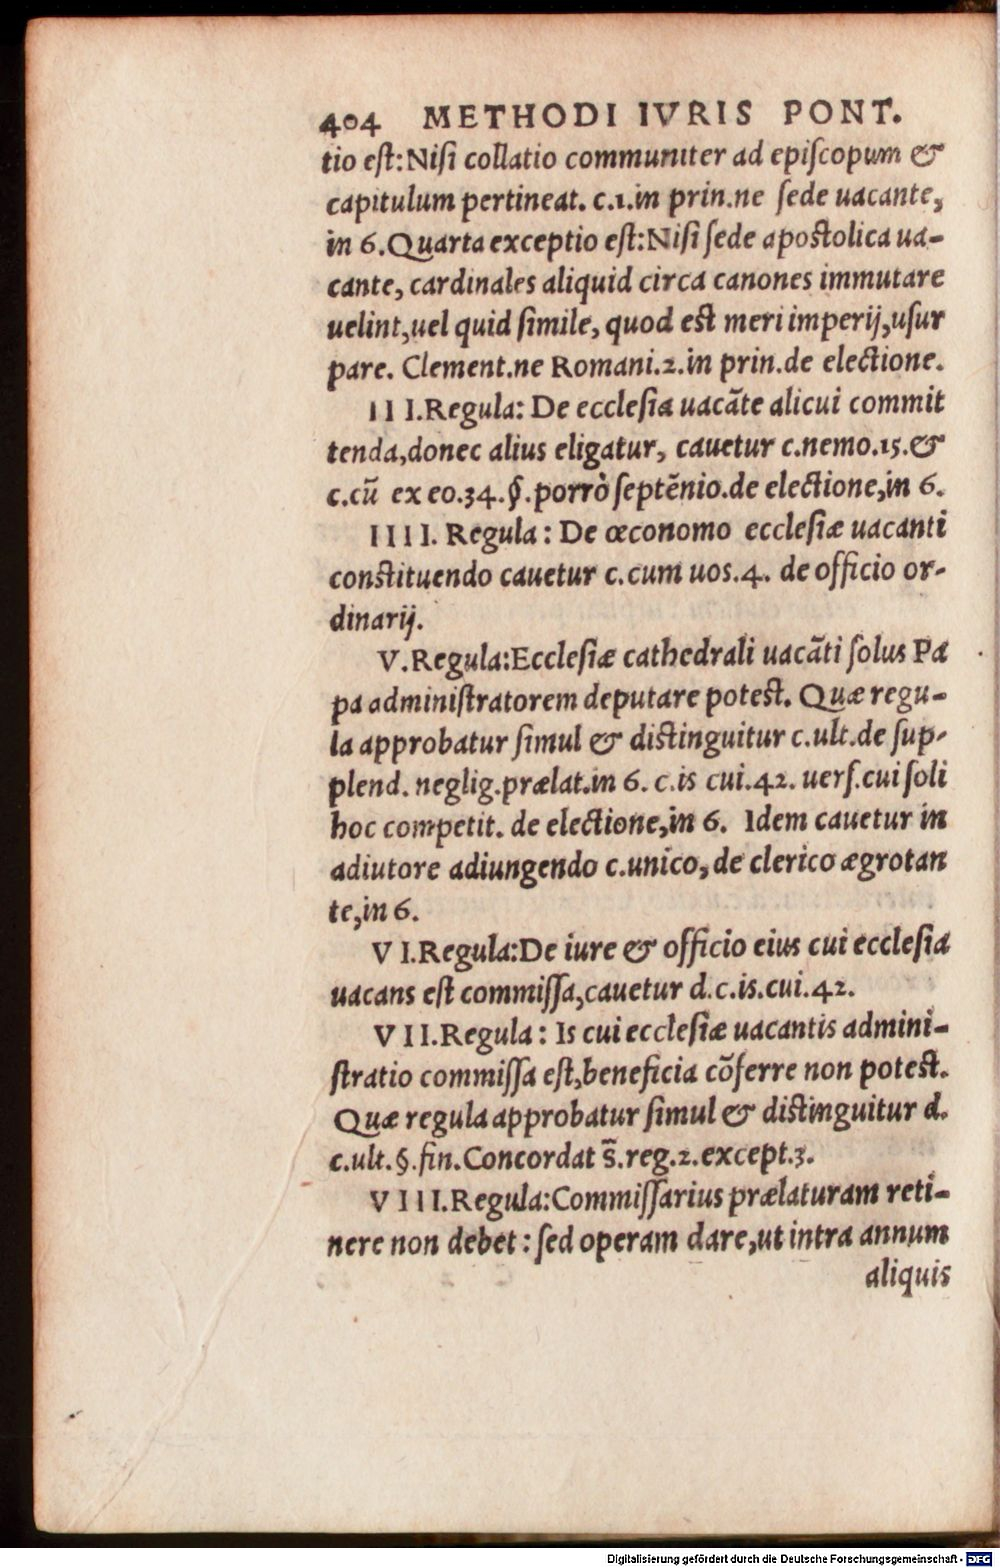 404 METHODI IVRIS PONT.
tio eſt: Niſi collatio communiter ad epiſcopum &
capitulum pertineat. c.1.in prin.ne ſede uacante,
in 6. Quarta exceptio eſt: Niſi ſede apoſtolica ua-
cante, cardinales aliquid circa canones immutare
uelint, uel quid ſimile, quod eſt meri imperij, uſur
pare. Clement.ne Romani.2.in prin.de electione.
III. Regula: De eccleſia uacāte alicui commit
tenda, donec alius eligatur, cauetur c.nemo.15.&
c.cū ex eo.34.§.porrò ſeptēnio.de electione,in 6.
IIII. Regula: De œconomo eccleſiæ uacanti
conſtituendo cauetur c.cum uos.4. de officio or-
dinarij.
V. Regula: Eccleſiæ cathedrali uacāti ſolus Pa
pa adminiſtratorem deputare poteſt. Quæ regu-
la approbatur ſimul & diſtinguitur c.ult.de ſup-
plend. neglig.prælat.in 6. c.is cui.42. uerſ.cui ſoli
hoc competit. de electione,in 6. Idem cauetur in
adiutore adiungendo c.unico, de clerico ægrotan
te,in 6.
VI. Regula: De iure & officio eius cui eccleſia
uacans eſt commiſſa, cauetur d.c.is.cui.42.
VII. Regula: Is cui eccleſiæ uacantis admini-
ſtratio commiſſa eſt, beneficia cōferre non poteſt.
Quæ regula approbatur ſimul & diſtinguitur d.
c.ult.§.fin. Concordat s̄.reg.2.except.3.
VIII. Regula: Commiſſarius prælaturam reti-
nere non debet: ſed operam dare, ut intra annum
aliquis
Digitalisierung gefördert durch die Deutsche Forschungsgemeinschaft - DFG